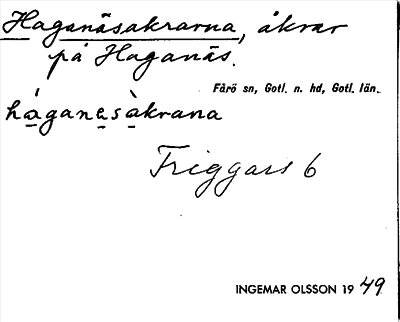 Haganäsakrarna, åkrar
på Haganäs.
Fårö sn, Gotl. n. hd, Gotl. län.
háganesàkrana
Friggars 6
INGEMAR OLSSON 19 49